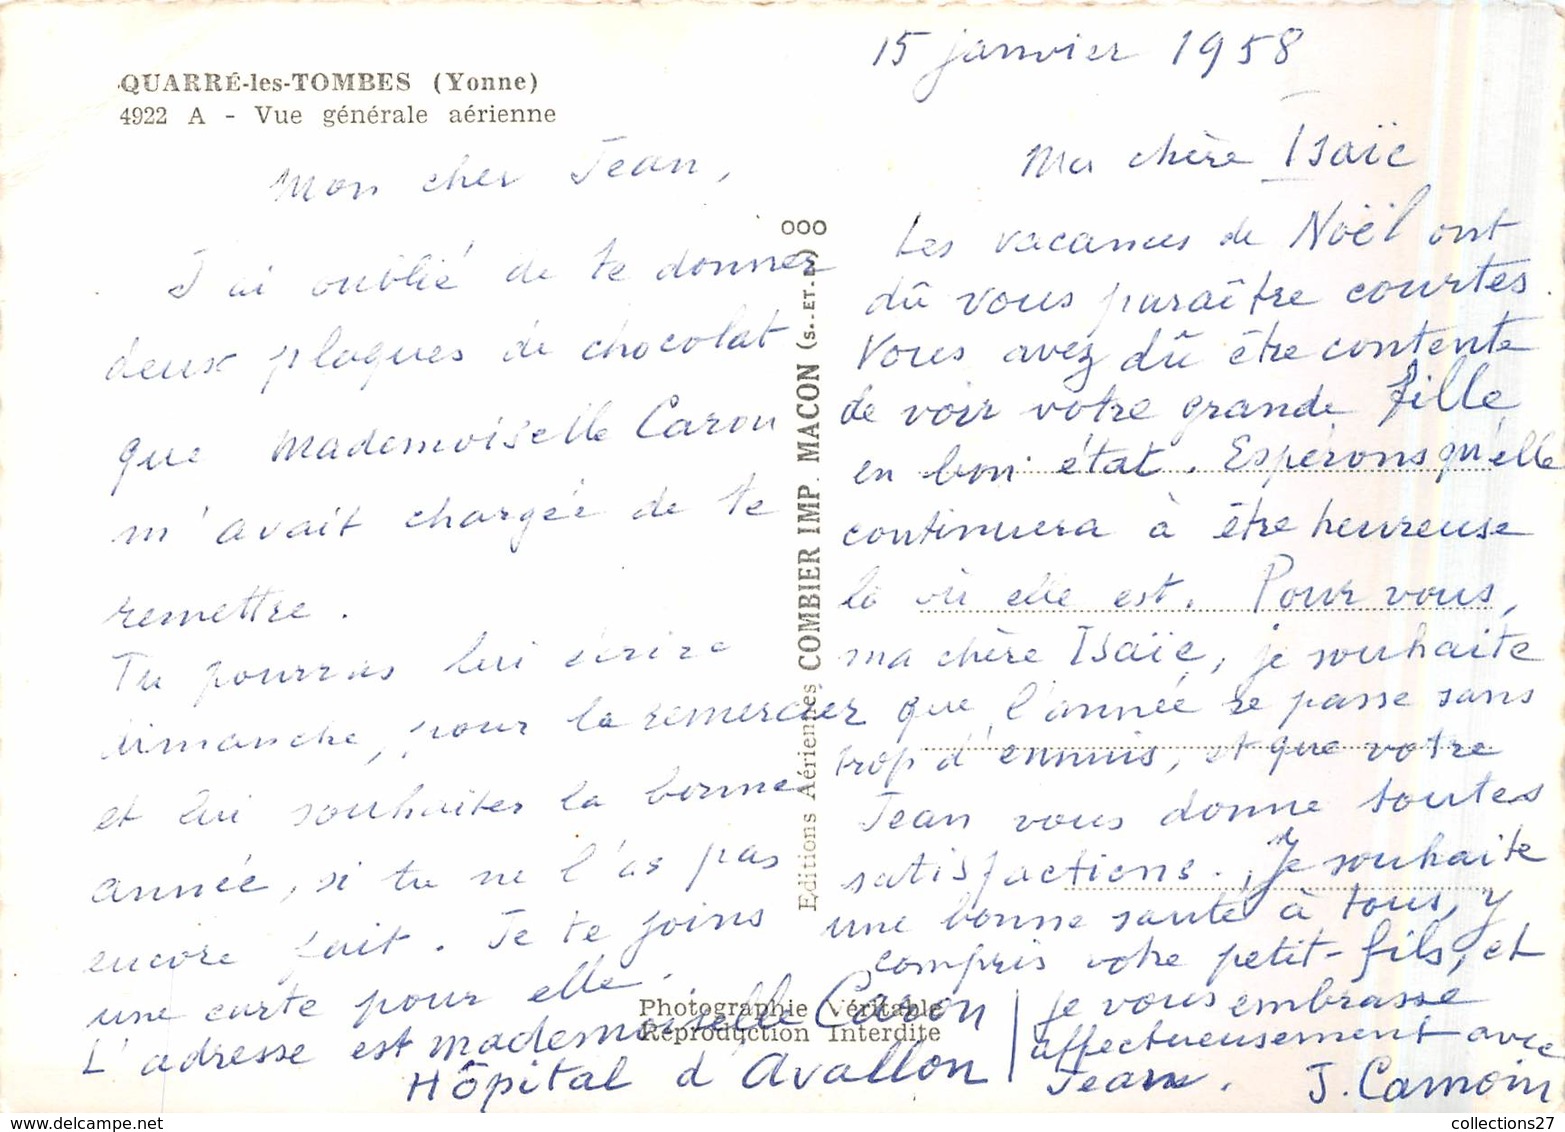 QUARRÉ-les-TOMBES (Yonne)
4922 A - Vue générale aérienne
Mon cher Jean,
J'ai oublié de te donner
deux plaques de chocolat
que Mademoiselle Caron
m'avait chargée de te
remettre.
Tu pourras lui écrire
dimanche, pour la remercier
et lui souhaiter la bonne
année, si tu ne l'as pas
encore fait. Je te joins
une carte pour elle.
L'adresse est mademoiselle Caron
Hôpital d'Avallon
OOO
Editions Aériennes COMBIER IMP. MACON (S.-ET-L.)
Photographie Véritable
Reproduction Interdite
15 janvier 1958
Ma chère Isaïe
Les vacances de Noël ont
dû vous paraître courtes.
Vous avez dû être contente
de voir votre grande fille
en bon état. Espérons qu'elle
continuera à être heureuse
là où elle est. Pour vous,
ma chère Isaïe, je souhaite
que l'année se passe sans
trop d'ennuis, et que votre
Jean vous donne toutes
satisfactions. Je souhaite
une bonne santé à tous, y
compris votre petit-fils, et
je vous embrasse
affectueusement avec
Jean. J. Camoin
collections27